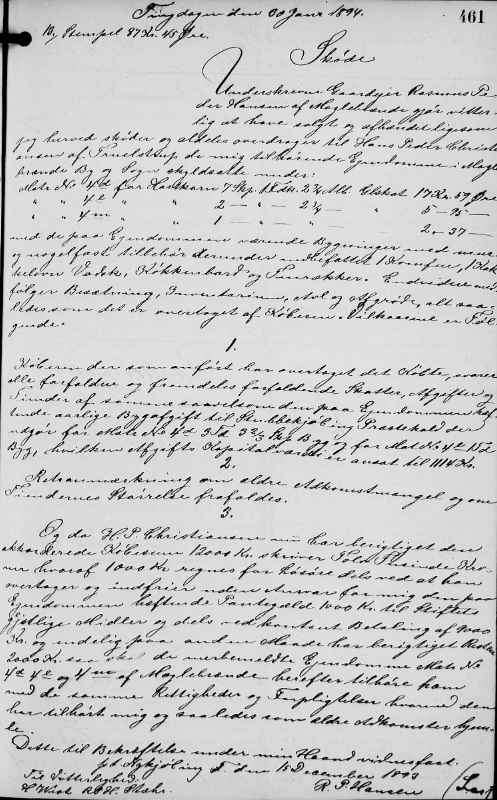 461
Tingdagen den 30 Janr 1894.
Bj Stempel 87 Kr. 45 Øre.
Skøde
Underskrevne Gaardejer Rasmus Pe-
der Hansen af Maglebrænde gjør vitter-
lig at have solgt og afhændet ligesom
jeg herved skøder og aldeles overdrager til Hans Peder Christi
ansen af Truelstrup de mig tilhørende Ejendomme i Magle
brænde By og Sogn skyldsatte under:
Matr No 4d for Hartkorn 7 Skp. 1 Fdk. 2¾ Alb. Glskat 17 Kr. 59 Øre
" " 4e " 2 – " – 2¼ – " 5 – 95 –
" " 4m " 1 – " – " – 2 – 37 –
med de paa Ejendommen værende Bygninger med mur
og nagelfast tilbehør derunder indbefattet 1 Komfur, 1 Kak
kelovn Vadsk, Køkkenbord og Tinrækker. Endvidere med
følger Besætning, Inventarium, Avl og Afgrøde, alt saa-
ledes som det er overtaget af Køberen. Vilkaarene er Føl
gende.
1.
Køberen der som anført har overtaget det Købte, svarer
alle forfaldne og fremdeles forfaldende Skatter, Afgifter og
Tiender af samme saavelsom den paa Ejendommen hæf
tende aarlige Bygafgift til Stubbekjøbing Præstekald der
udgør for Matr No 4d 3 Td 3⅔ Skp Byg og for Mat No 4e 1 Td
Byg, hvilken Afgifts Kapitalværdi er ansat til 1114 Kr.
2.
Retsanmærkning om ældre Adkomstmangel og om
Tiendernes Størrelse frafaldes.
3.
Og da H. P. Christiansen nu har berigtiget den
akkorderede Købesum 12000 Kr. skriver Tolv Tusinde Kro-
ner hvoraf 1000 Kr. regnes for Løsøre dels ved at han
overtager og indfrier uden Ansvar for mig den paa
Ejendommen hæftende Pantegæld 1000 Kr. til Stiftets
gejstlige Midler og dels ved kontant Betaling af 9000
Kr. og endelig paa anden Maade har berigtiget Resten
2000 Kr. saa skal de mermeldte Ejendomme Matr No
4d 4e og 4m af Maglebrænde herefter tilhøre ham
med de samme Rettigheder og Forpligtelser hvormed den
har tilhørt mig og saaledes som ældre Adkomster hjem-
le.
Dette til Bekræftelse under min Haand vidnesfast.
pt Nykjøbing F. den 15 December 1893
Til Vitterlighed: R. P. Hansen